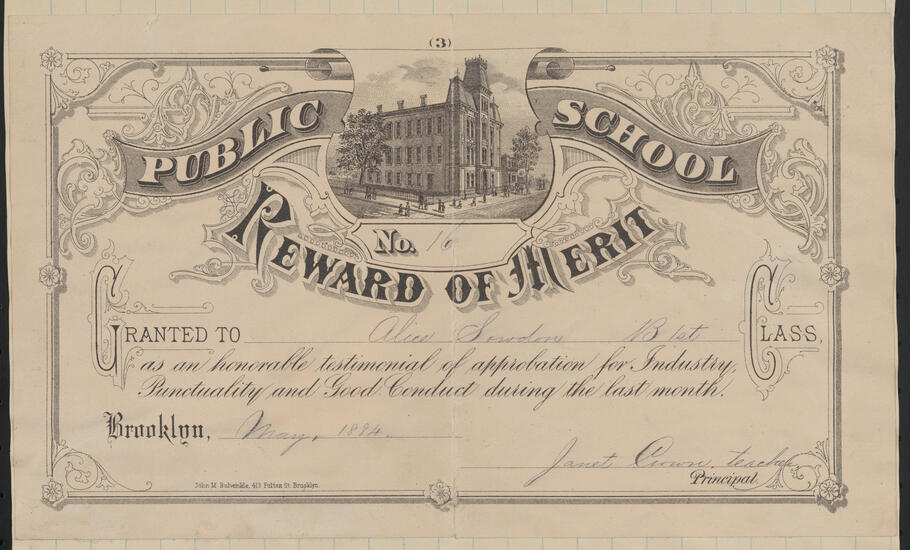 (3)
PUBLIC SCHOOL
No. 16
REWARD OF MERIT
GRANTED TO Alice Sowdon B 1st CLASS,
as an honorable testimonial of approbation for Industry,
Punctuality and Good Conduct during the last month.
Brooklyn, May, 1884.
Janet Crown, teacher
Principal.
John M. Bulwinkle, 413 Fulton St. Brooklyn.